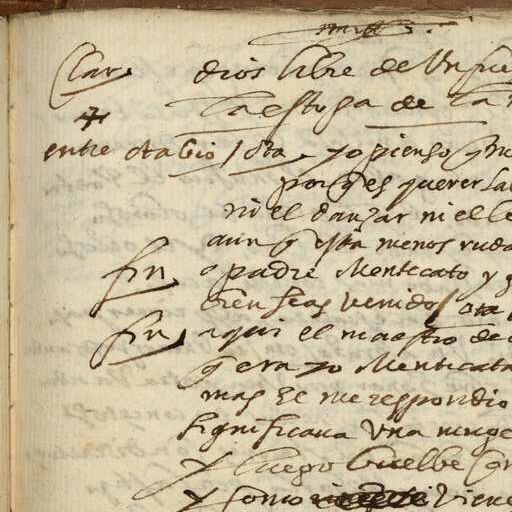 Clar. dios libre de Un fue
la estofa de la
entre otabio / ota. yo pienso q̃ no
por q̃ es querer la
ni el danzar ni el le
aun q̃ està menos ruda
fin. o padre Mentecato y
bien seas venido / ota
fin. aqui el maestro de
q̃ era yo Mentecata
mas El me respondio
significaua Una muge
y luego buelbe
y como viene